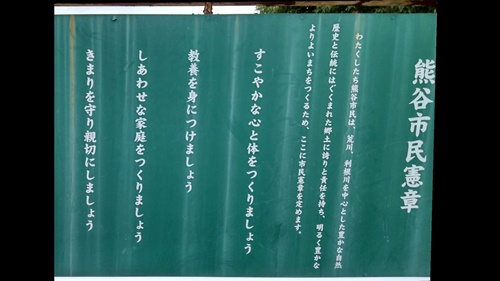 熊谷市民憲章
わたくしたち熊谷市民は、荒川、利根川を中心とした豊かな自然
歴史と伝統にはぐくまれた郷土に誇りと責任を持ち、明るく豊かな
よりよいまちをつくるため、ここに市民憲章を定めます。
すこやかな心と体をつくりましょう
教養を身につけましょう
しあわせな家庭をつくりましょう
きまりを守り親切にしましょう